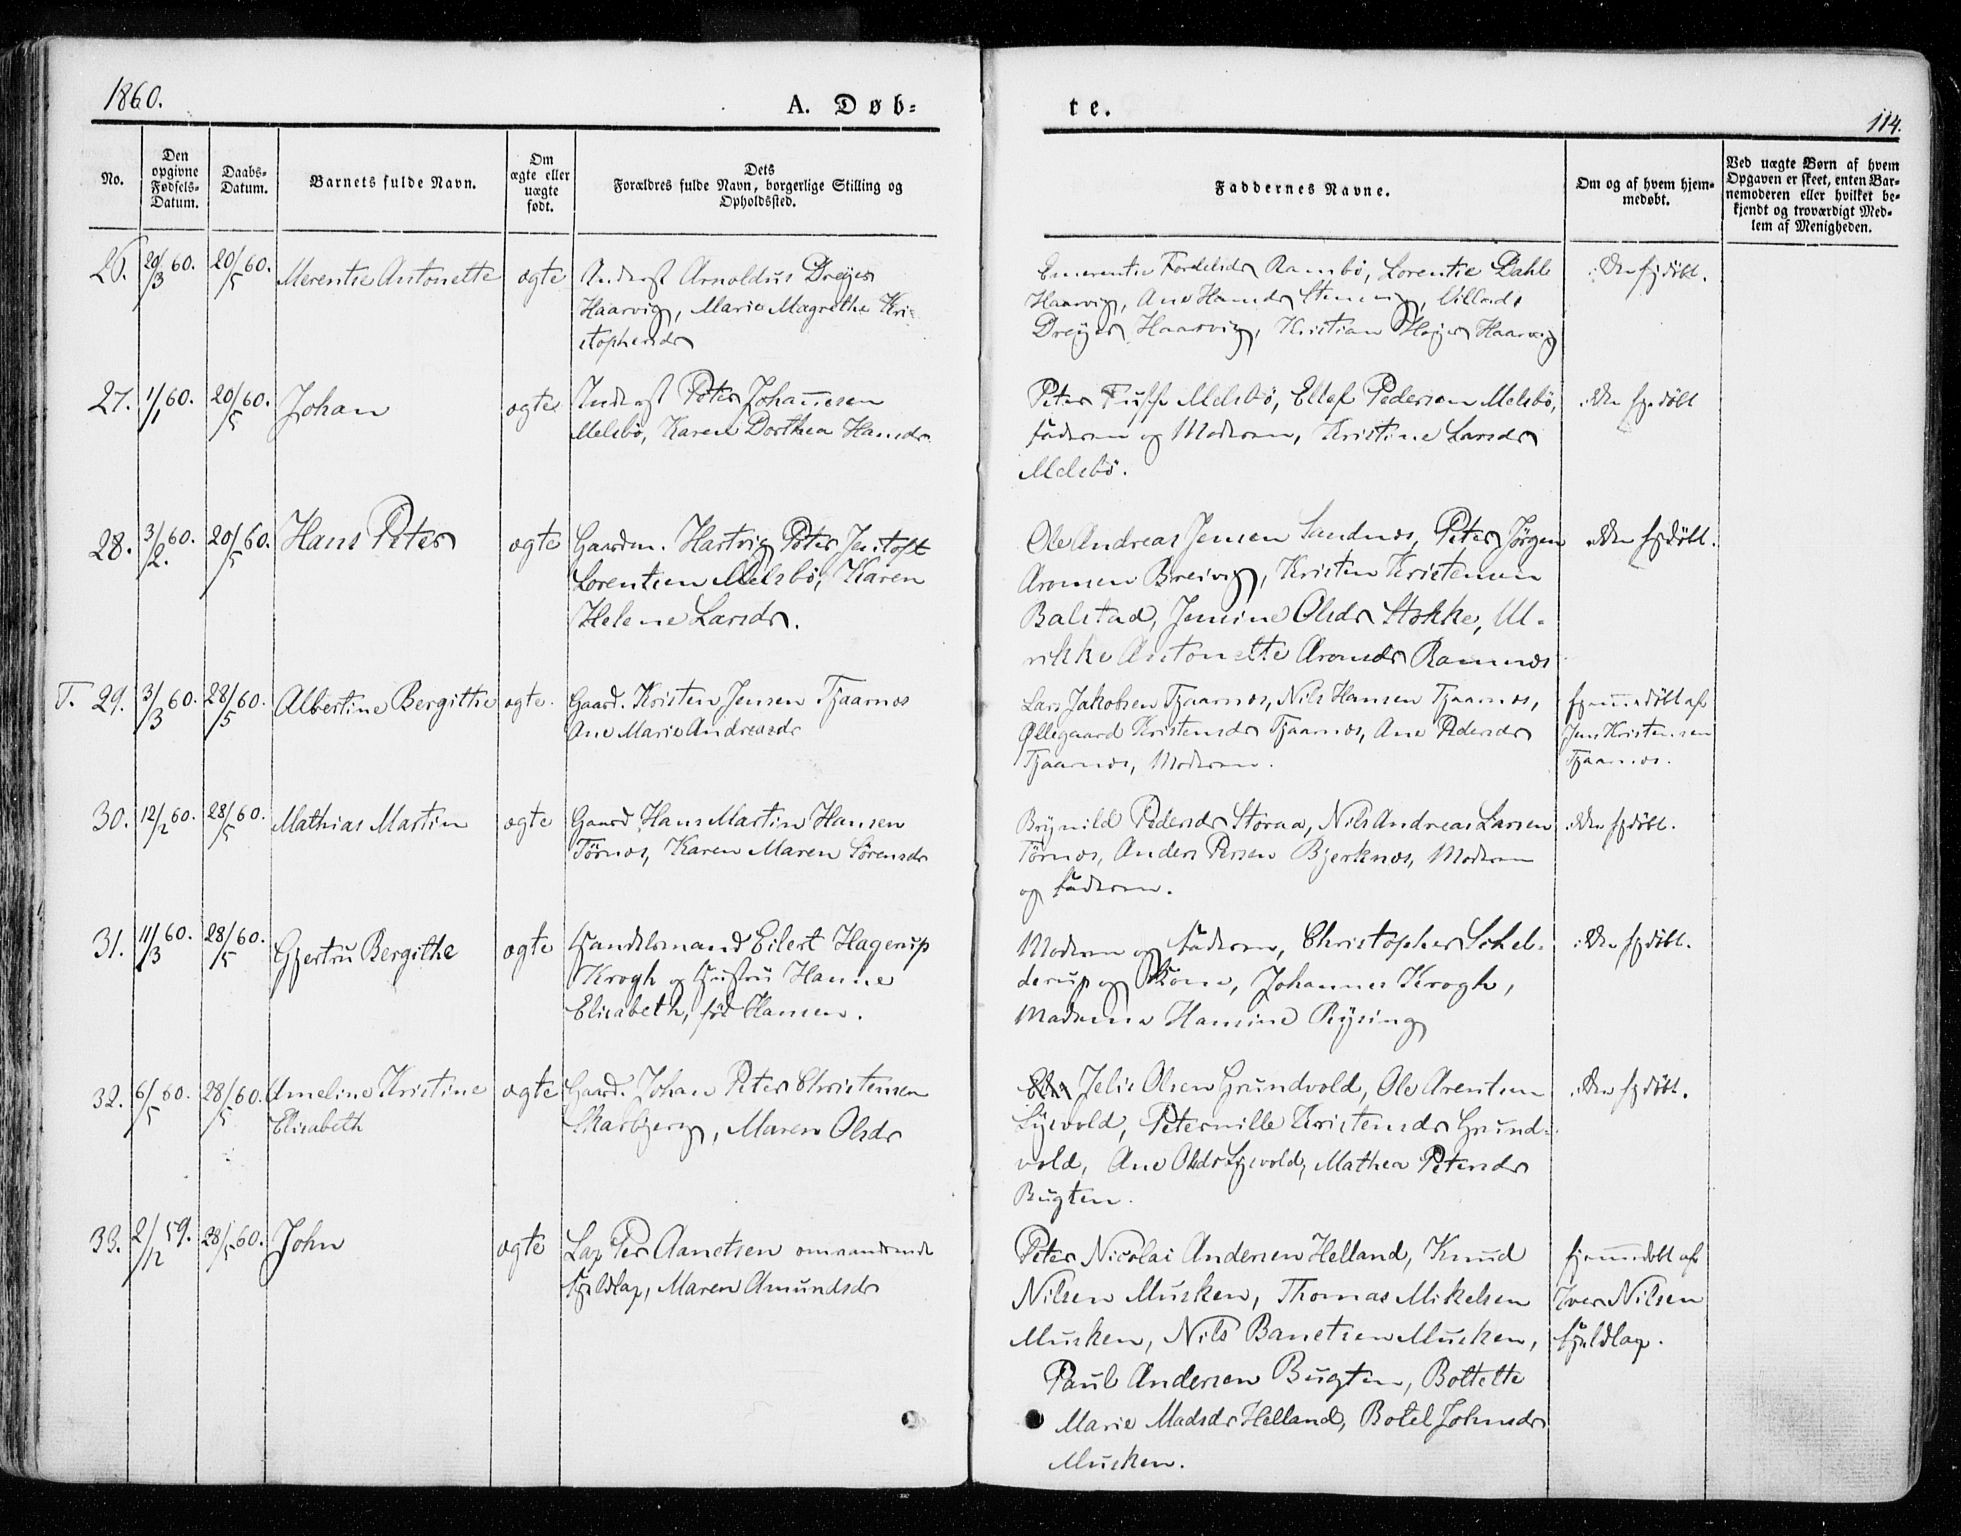 1860.
A. Døb-
te.
114.
No.
Den opgivne Fødsels-Datum.
Daabs-Datum.
Barnets fulde Navn.
Om ægte eller uægte født.
Dets Forældres fulde Navn, borgerlige Stilling og Opholdssted.
Faddernes Navne.
Om og af hvem hjem-medøbt.
Ved uægte Børn af hvem Opgaven er skeet, enten Bar-nemoderen eller hvilket be-kjendt og troværdigt Med-lem af Menigheden.
26. 20/3 60. 20/5 60. Merentse Antonette ægte
Inderst Arnoldus Dreyer
Haarvig, Marie Magrethe Kri-
stophersdr
Emerentse Rambø, Lorentse Dahl
Haarvig, Ane Hansdr
Dreyer Haarvig, Kristian Høyer Haarvig
ikke hjdøbt.
27. 1/1 60. 20/5 60. Johan ægte
Inderst Peter Johannesen
Melsbø, Karen Dorthea Hansdr.
Peter Melsbø, Ellef Pedersen Melsbø,
Faderen og Moderen, Kristine Larsdr
Melsbø.
ikke hjdøbt
28. 3/2. 60. 20/5 60. Hans Peter ægte
Gaardm. Hartvig Peter Jentoft
Lorentsen Melsbø, Karen
Helene Larsdr.
Ole Andreas Jensen Sandnes, Peter Jørgen
Aronsen Breivig, Kristen Kristensen
Balstad, Jensine Olsdr Stokke, Ul-
rikke Antonette Aronsdr Ramnæs
ikke hjdøbt.
T. 29. 3/3 60. 28/5 60. Albertine Bergithe ægte.
Gaard. Kristen Jensen Tjaarnæs
Ane Marie Andreasdr
Lars Jakobsen Tjaarnæs, Nils Hansen Tjaarnæs,
Øllegaard Kristensdr Tjaarnæs, Ane Pedersdr
Tjaarnæs, Moderen.
hjemmedøbt af
Jens Kristensen
Tjaarnæs.
30. 12/2 60. 28/5 60. Mathias Martin ægte
Gaard. Hans Martin Hansen
Tørnæs, Karen Maren Sørensdr
Brynild Pedersdr Storaa, Nils Andreas Larsen
Tørnæs, Anders Persen Bjerknæs, Moderen
og Faderen.
ikke hjdøbt.
31. 11/3 60. 28/5 60. Gjertru Bergithe ægte
Handelsmand Eilert Hagerup
Krogh og Hustru Hanne
Elisabeth, fød Hansen.
Moderen og Faderen, Christopher Schel-
derup og Kone, Johannes Krogh,
Madame Hansine Rysing
ikke hjdøbt.
32. 6/5 60. 28/5 60. Ameline Kristine ægte
Elisabeth
Gaard. Johan Peter Christensen
Skarbjerg, Maren Olsdr
Jelis Olsen Grundvold, Ole Arentsen
Sysvold, Peternille Kristensdr Grund-
vold, Ane Olsdr Sysvold, Mathea Petersdr
Bugten.
ikke hjdøbt.
33. 2/12 59. 28/5 60. John ægte
Lap Per Aanetsen omvandrende
Fjeldlap, Maren Amundsdr
Peter Nicolai Andersen Helland, Knud
Nilsen Musken, Thomas Mikelsen
Musken, Nils Banetsen Musken,
Paul Andersen Bugten, Boltette
Marie Madsdr Helland, Botel Johnsdr
Musken.
hjemmedøbt af
Iver Nilsen
Fjeldlap.